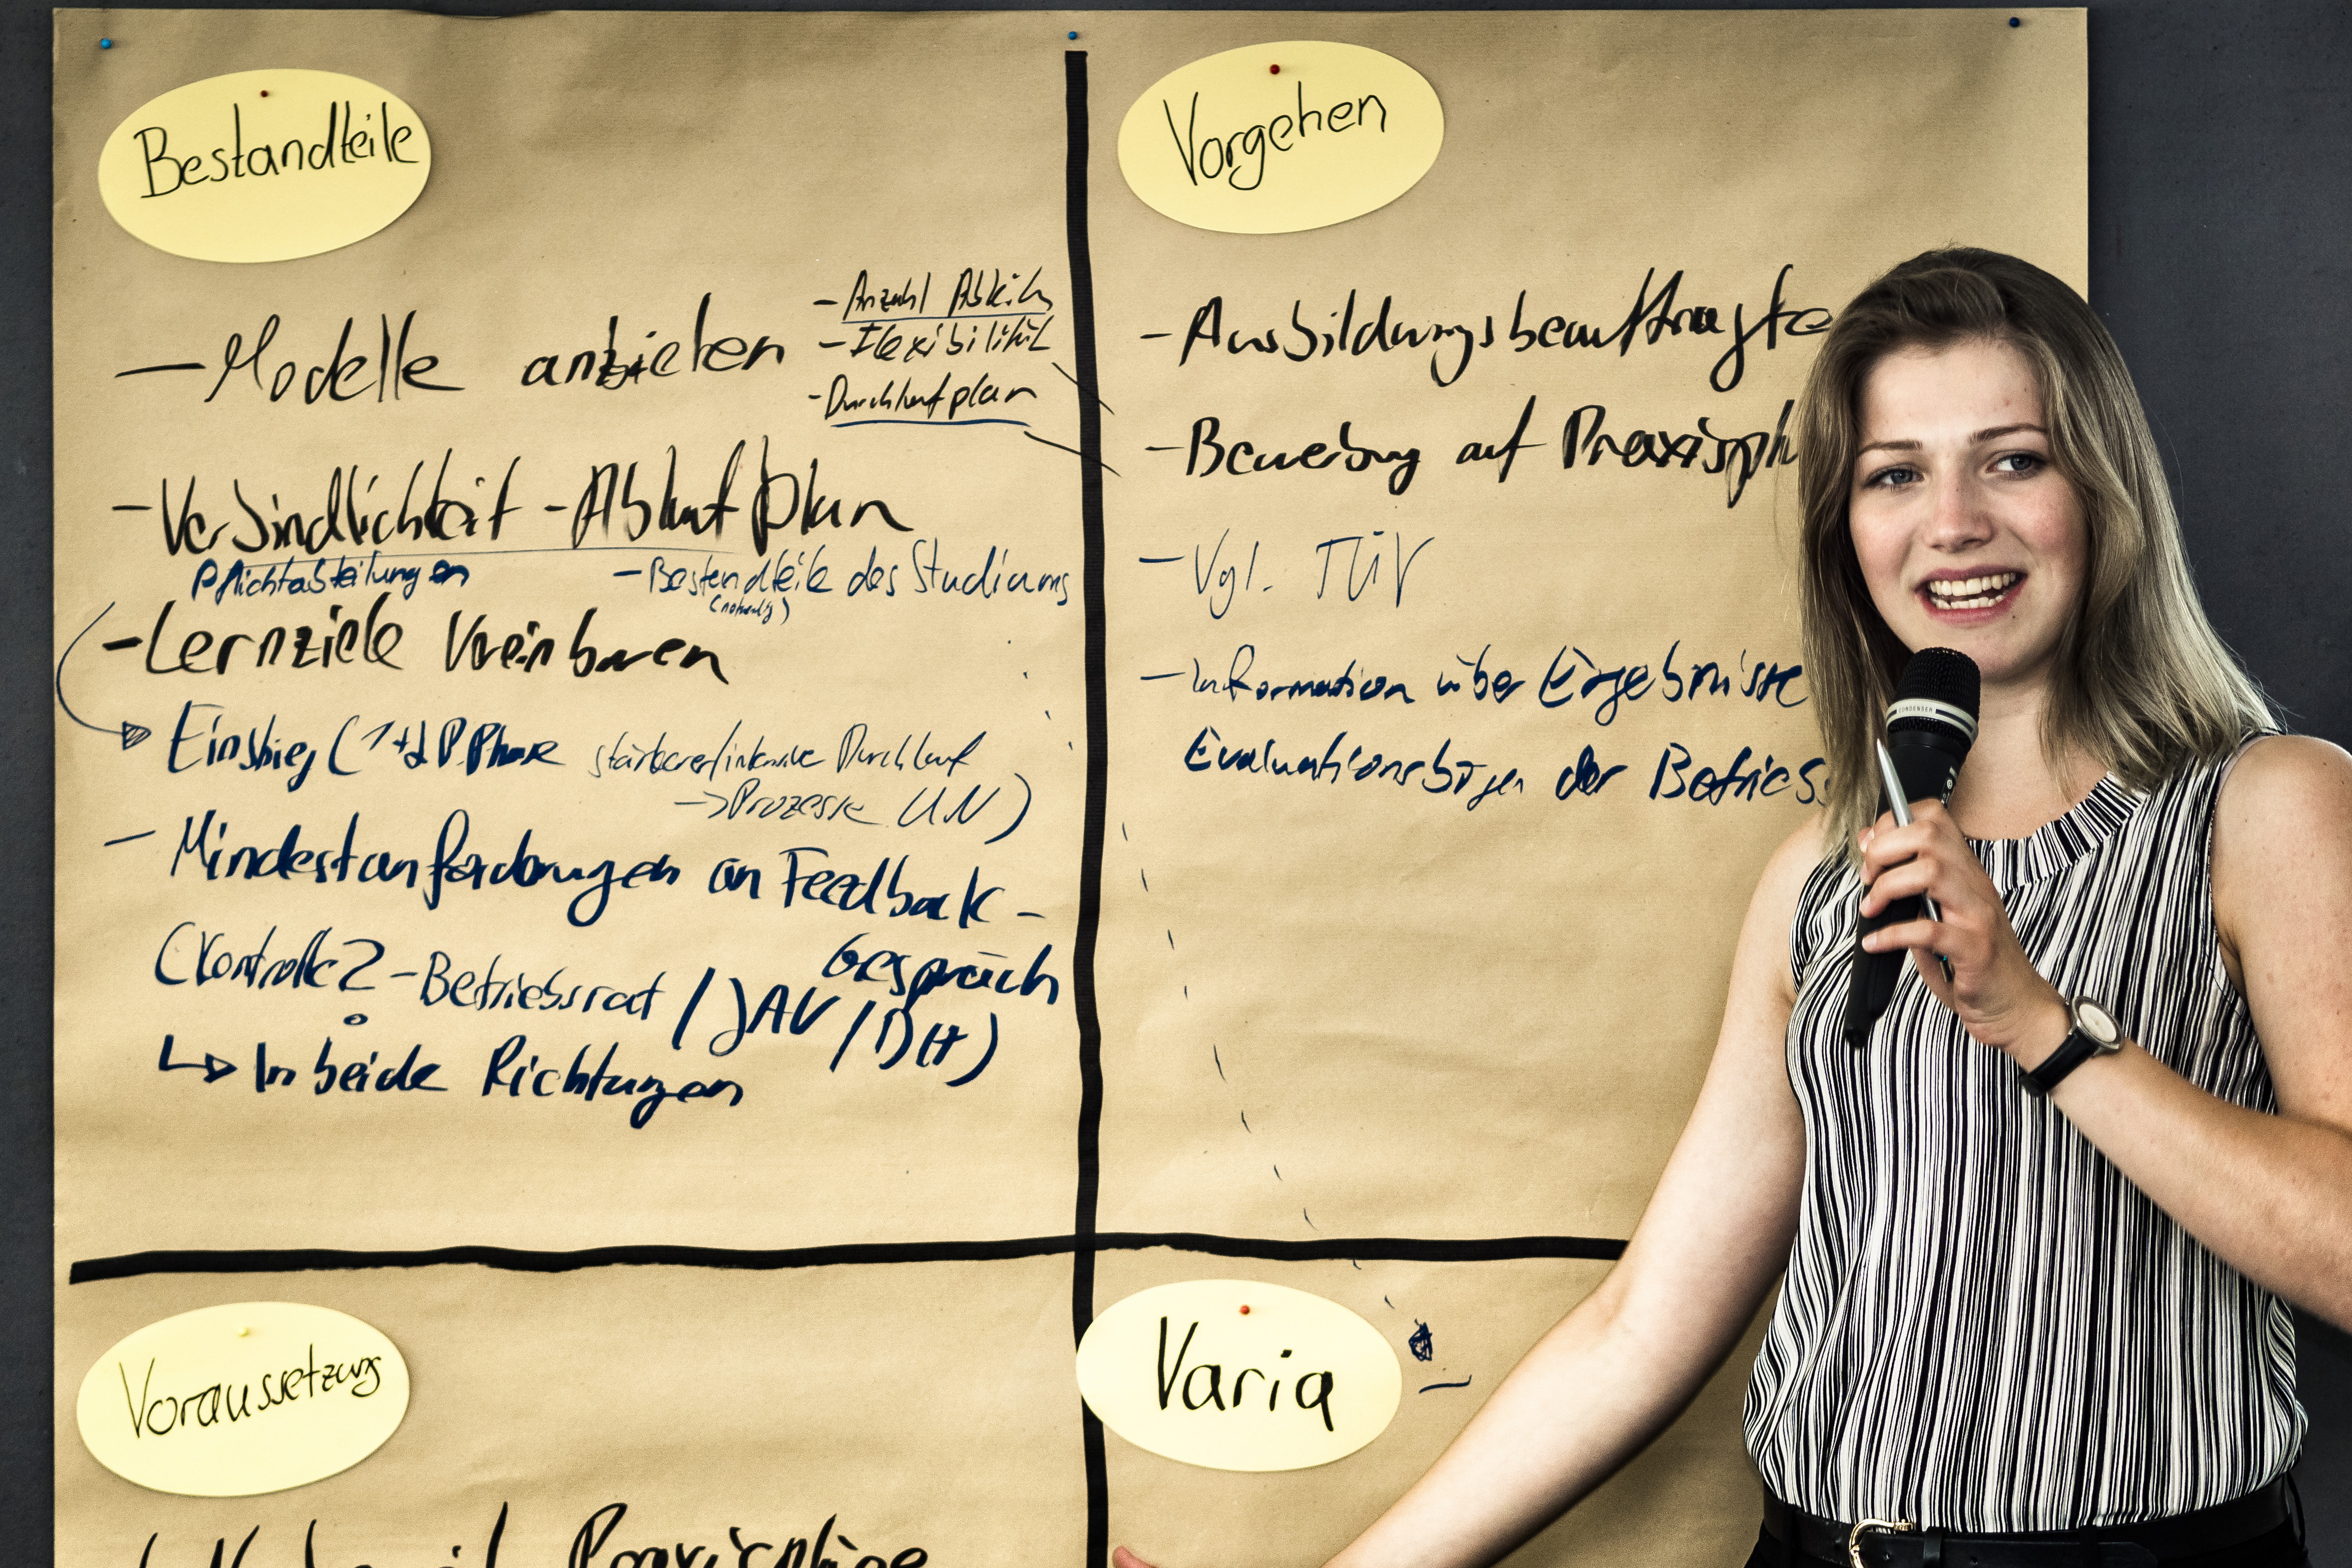 Bestandteile
- Modelle anbieten
- Anzahl Abteil
- Flexibilität
- Durchlaufplan
- Verbindlichkeit - Ablaufplan
Pflichtabteilungen
- Bestandteile des Studiums
- Lernziele Vereinbaren
Einstieg ( 1+2 P. Phase stärkerer/intensive Durchlauf
-> Prozesse UN )
- Mindestanforderungen an Feedback-
Gespräch
(Kontrolle? - Betriebsrat / JAV / DH)
↳ In beide Richtungen
Vorgehen
- Ausbildungsbeauftragte
- Bewerbung auf Praxisph
- Vgl. TÜV
- Information über Ergebnisse
Evaluationsbögen der Betriebs
Voraussetzung
Praxispläne
Varia
CONDENSER